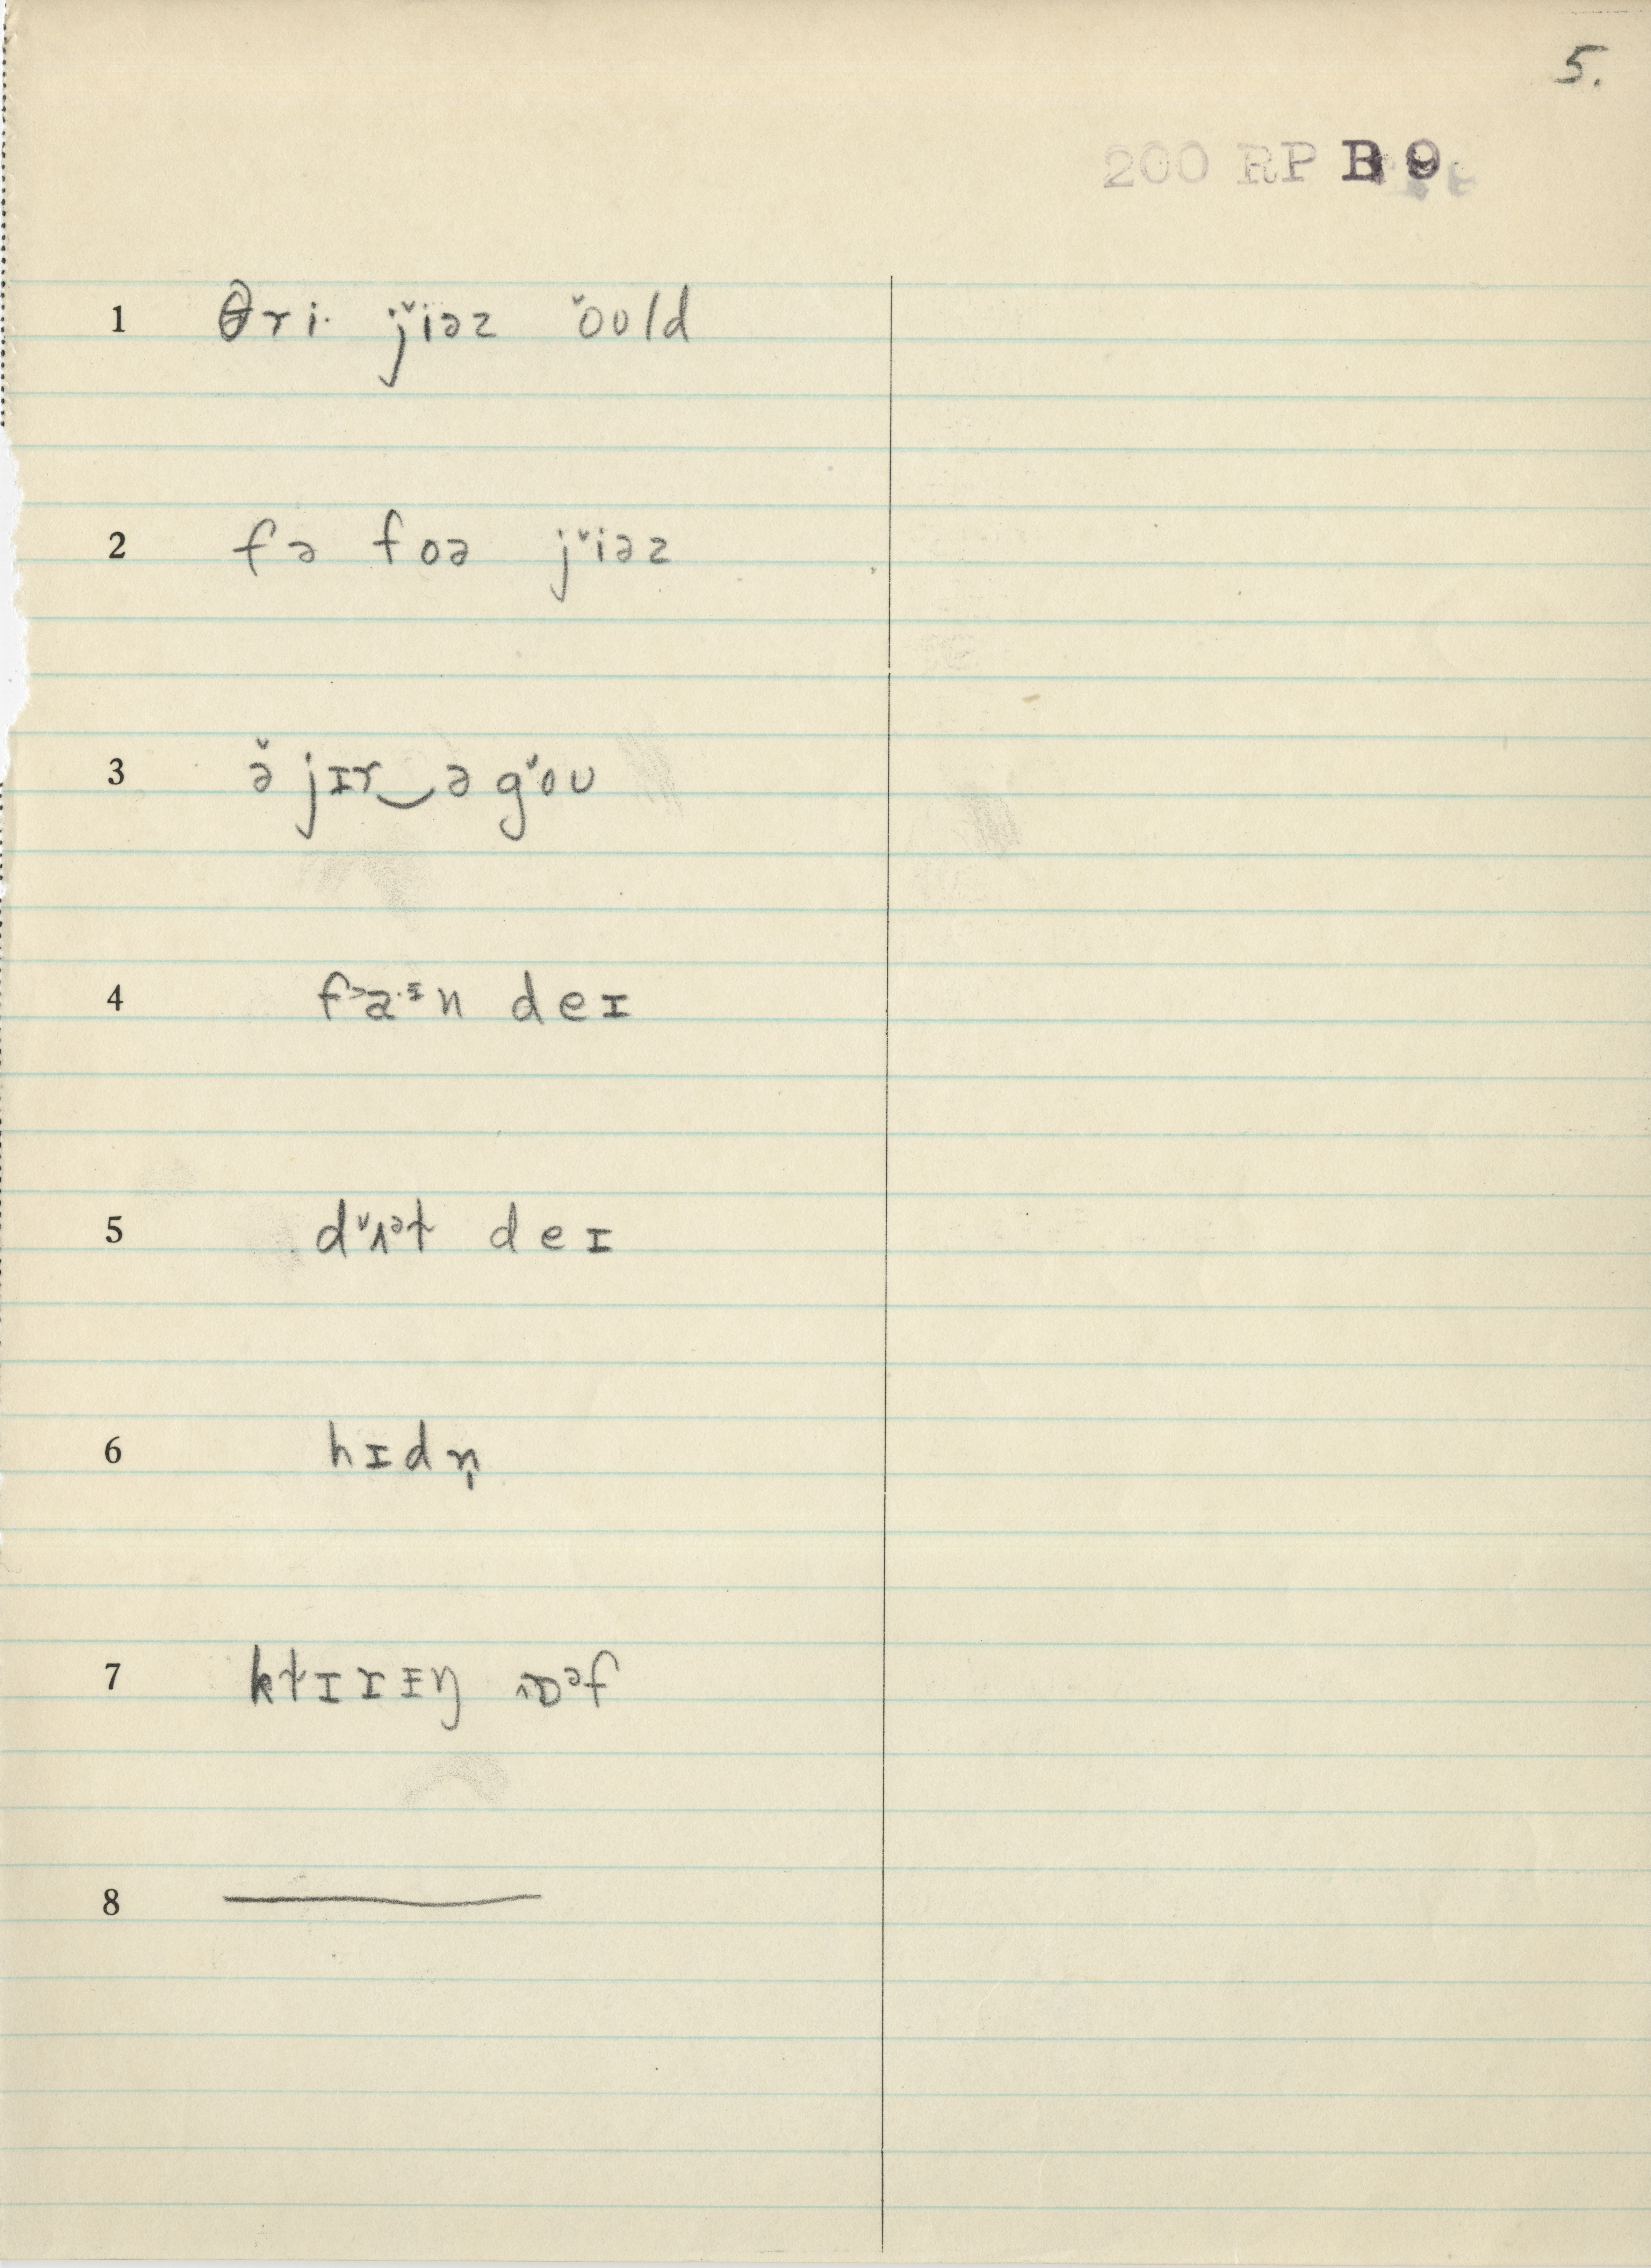 5.
200 RP B 9
1 θri· j˅iəz ˅oʊld
2 fə foə j˅iəz
3 ə̌ jɪr‿ə g˅oʊ
4 f˃a·ᵻn deɪ
5 d˅ʌᵊɫ deɪ
6 hɪdn̩
7 kɫɪrɪŋ ˄ɒᵊf
8